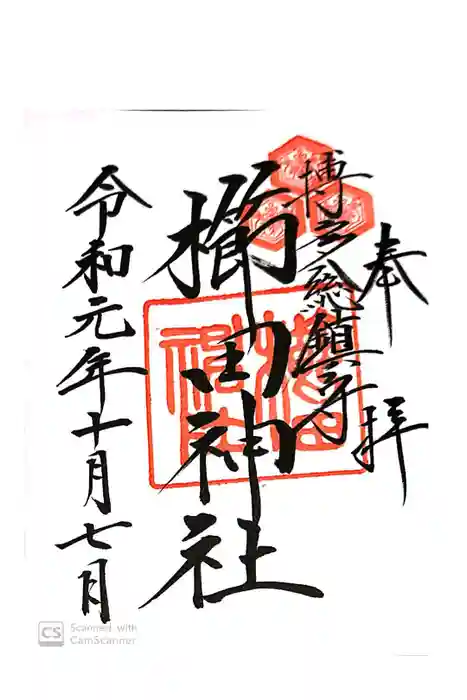 奉拝
博多総鎮守
櫛田神社
令和元年十月七日
櫛田神社
CS
Scanned with
CamScanner